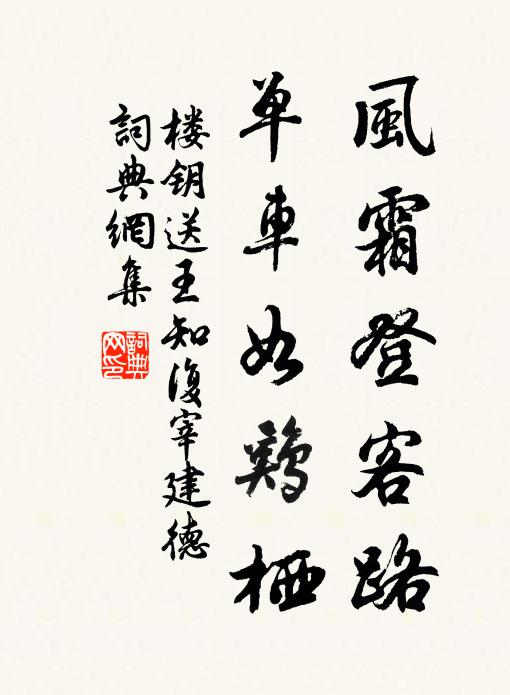 風霜登客路
单車如鷄栖
楼钥送王知復宰建德
詞典網集
詞典網印